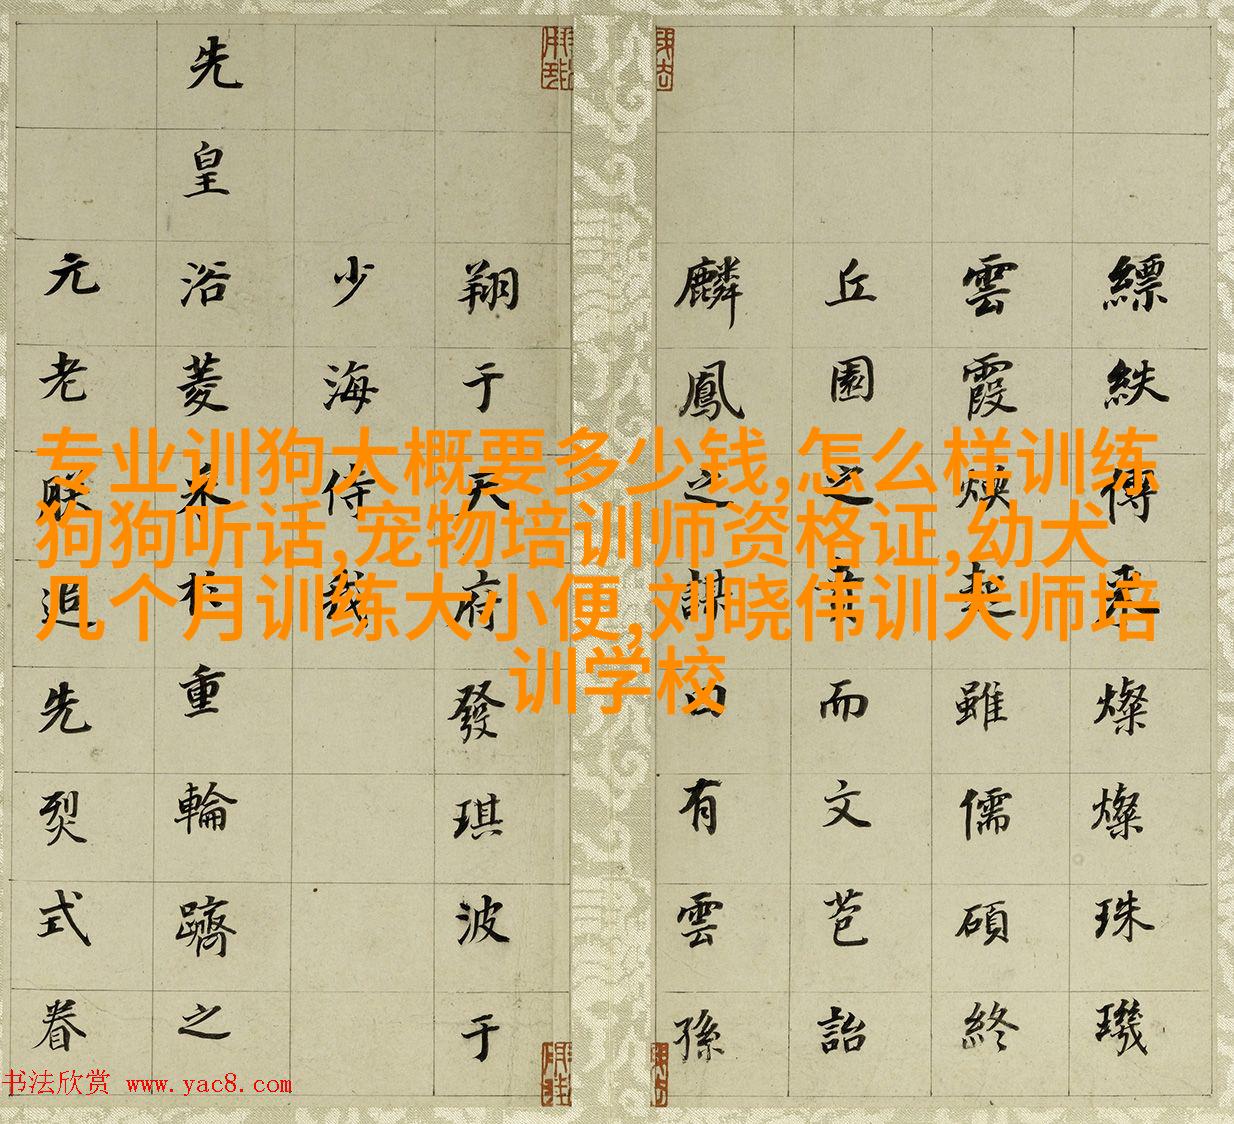 专业训狗大概要多少钱,怎么样训练
狗狗听话,宠物培训师资格证,幼犬
几个月训练大小便,刘晓伟训犬师培
训学校
縹紩傳燦燦珠璣
雲霞煥雖儒碩終
丘園之而文苞詒
麟鳳之謀有雲孫
翔于天府發琪波于
少海侍我
先皇浴菱重輪躋之
元老追先烈式眷
书法欣赏 www.yac8.com